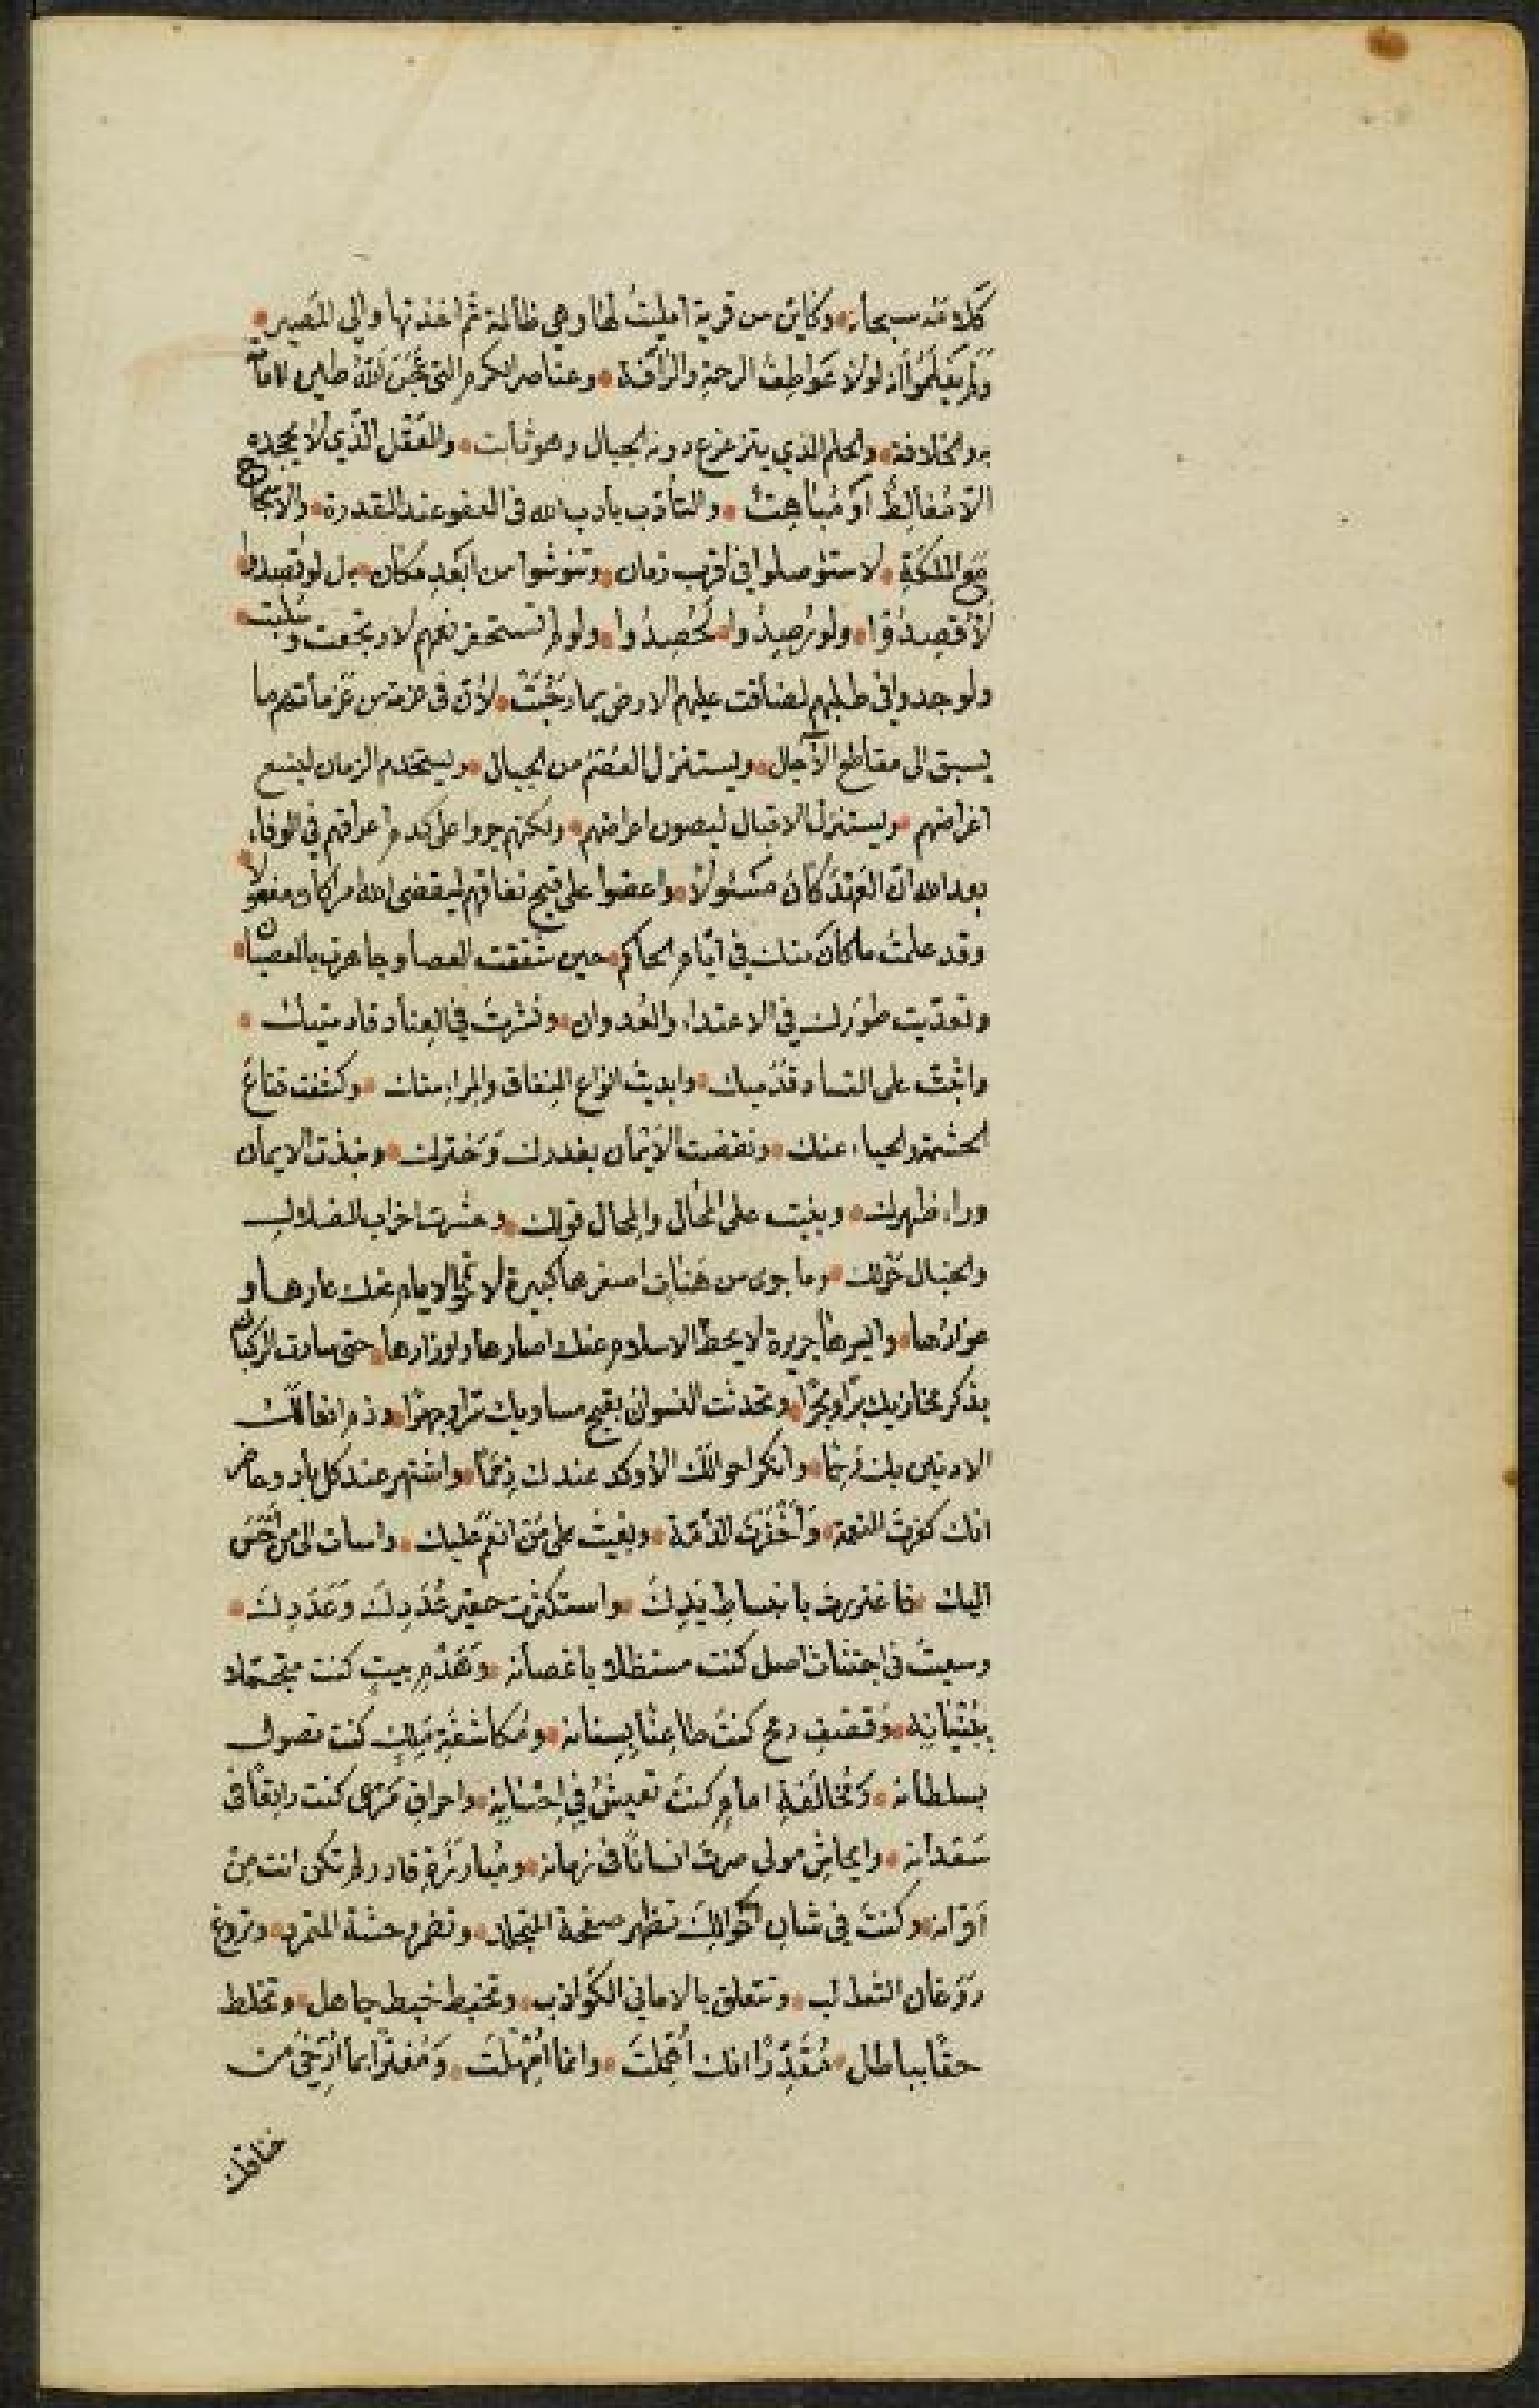 كلامه سبحانه وكاين من قرية امليت لها وهي ظالمة ثم اخذتها والي المصير
ولم يعلموا انه لولا عواطف الرحمة والرافة وعناصر الكرم التي عجن الله طين الامامة
به والخلافة والحلم الذي يتزعزع دونه الجبال وهو ثابت والعقل الذي لا يجحده
الا مغالط او مباهت والتأدب بادب الله في العفو عند المقدرة والاسجاح
مع الملكة لاستؤصلوا في اقرب زمان وتنوشوا من ابعد مكان بل لو قصدوا
لاقصدوا ولو رصدوا لحصدوا ولو لم تستحفز نعهم لارتجعت وسلبت
ولو جدوا في طلبهم لضاقت عليهم الارض بما رحبت لان في عزمة من عزماتهم ما
يسبق الى مقاطع الآجال ويستنزل العصم من الجبال ويستخدم الزمان ليتبع
اغراضهم ويستنزل الاقبال ليصون اعراضهم ولكنهم جروا على كرم اعراقهم في الوفاء
بعهد الله ان العهد كان مسئولا واعضوا على قبيح نفاقهم ليقضى الله امرا كان مفعولا
وقد علمت ما كان منك في ايام الحاكم حين شققت العصا وجاهرت بالعصيان
وتعديت طورك في الاعتداء والعدوان ونشرت في العناد قادمتيك
واثبت على الفساد قدميك وابديت انواع النفاق والمراء منك وكشفت قناع
الحشمة والحياء عنك ونقضت الايمان بغدرك وخترك ونبذت الايمان
وراء ظهرك وبنيت على المحال والمحال قولك وحشرت احزاب الضلال
والخبال حولك وما جرى من هنات اصغرها كبيرة لا تمحو الايام عنك عارها و
عوارها وايسرها جريرة لا يحط الاسلام عنك اصارها واوزارها حتى سارت الركبان
بذكر مخازيك برا وبحرا وتحدثت النسوان بقبيح مساويك سرا وجهرا وذم افعالك
الادنين بك رحما وانكر احوالك الاوكد عندك ذمما واشتهر عند كل باد وحاضر
انك كفرت النعمة واخفرت الذمة وبغيت على من انعم عليك واسأت الى من احسن
اليك فاغتررت بانبساط يدك واستكثرت حقير عددك وعددك
وسعيت في اجتثاث اصل كنت مستظلا باغصانه وهدم بيت كنت متجملا
ببنيانه وقصف رمح كنت طاعنا بسنانه ومكاشفة ملك كنت تصول
بسلطانه ومخالفة امام كنت تعيش في احسانه واحراق مرعى كنت راتعا في
سعدانه وايحاش مولى صرت انسانا في زمانه ومبارزة قادر لم تكن انت من
اقرانه وكنت في شان احوالك تظهر صفحة المتجلد وتضمر وحشة المتمرد وتروغ
روغان الثعالب وتتعلق بالاماني الكواذب وتخبط خبط جاهل وتخلط
حقا بباطل مقدرا انك اهملت وانما امهلت ومغترا بما ارخي من
خناقك